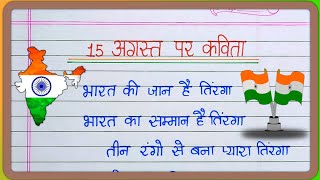 15 अगस्त पर कविता
भारत की जान है तिरंगा
भारत का सम्मान है तिरंगा
तीन रंगो से बना प्यारा तिरंगा